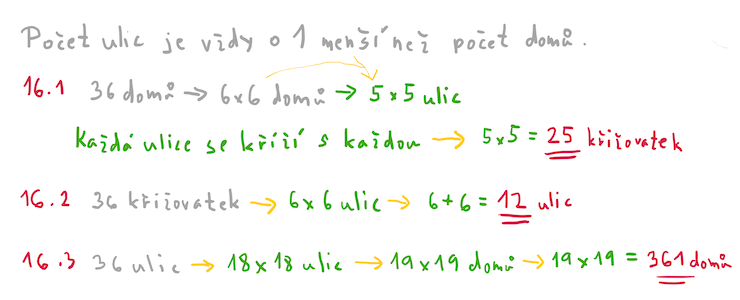 Počet ulic je vždy o 1 menší než počet domů.
16.1 36 domů → 6x6 domů → 5x5 ulic
Každá ulice se kříží s každou → 5x5 = 25 křižovatek
16.2 36 křižovatek → 6x6 ulic → 6+6 = 12 ulic
16.3 36 ulic → 18x18 ulic → 19x19 domů → 19x19 = 361 domů